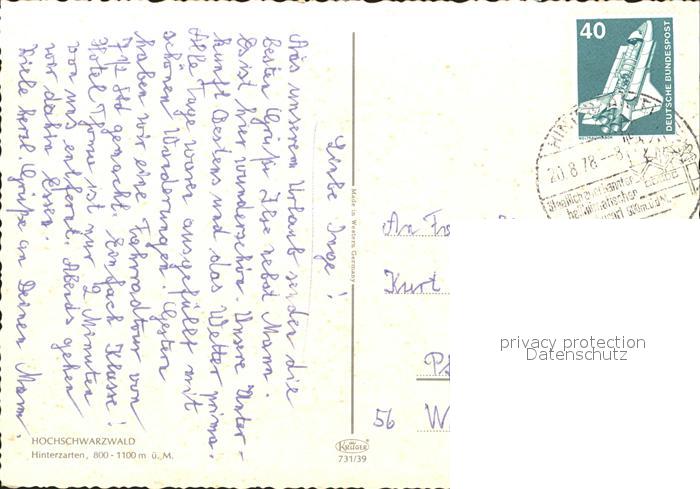 Liebe Inge!
Aus unserem Urlaub senden die
besten Grüße Ilse nebst Mann.
Es ist hier wunderschön. Unsere Unter-
kunft bestens und das Wetter prima.
Alle Tage waren ausgefüllt mit
schönen Wanderungen. Gestern
haben wir eine Fahrradtour von
7 1/2 Std gemacht. Einfach Klasse!
Hotel Thoma ist nur 2 Minuten
von uns entfernt. Abends gehen
wir dahin essen.
Viele herzl. Grüße an Deinen Mann.
HOCHSCHWARZWALD
Hinterzarten, 800 - 1100 m ü. M.
Made in Western Germany
KRÜGER
731/39
40
DEUTSCHE BUNDESPOST
20.8.78.-8
heilklimatischer
An
Kurt
56 W
privacy protection
Datenschutz